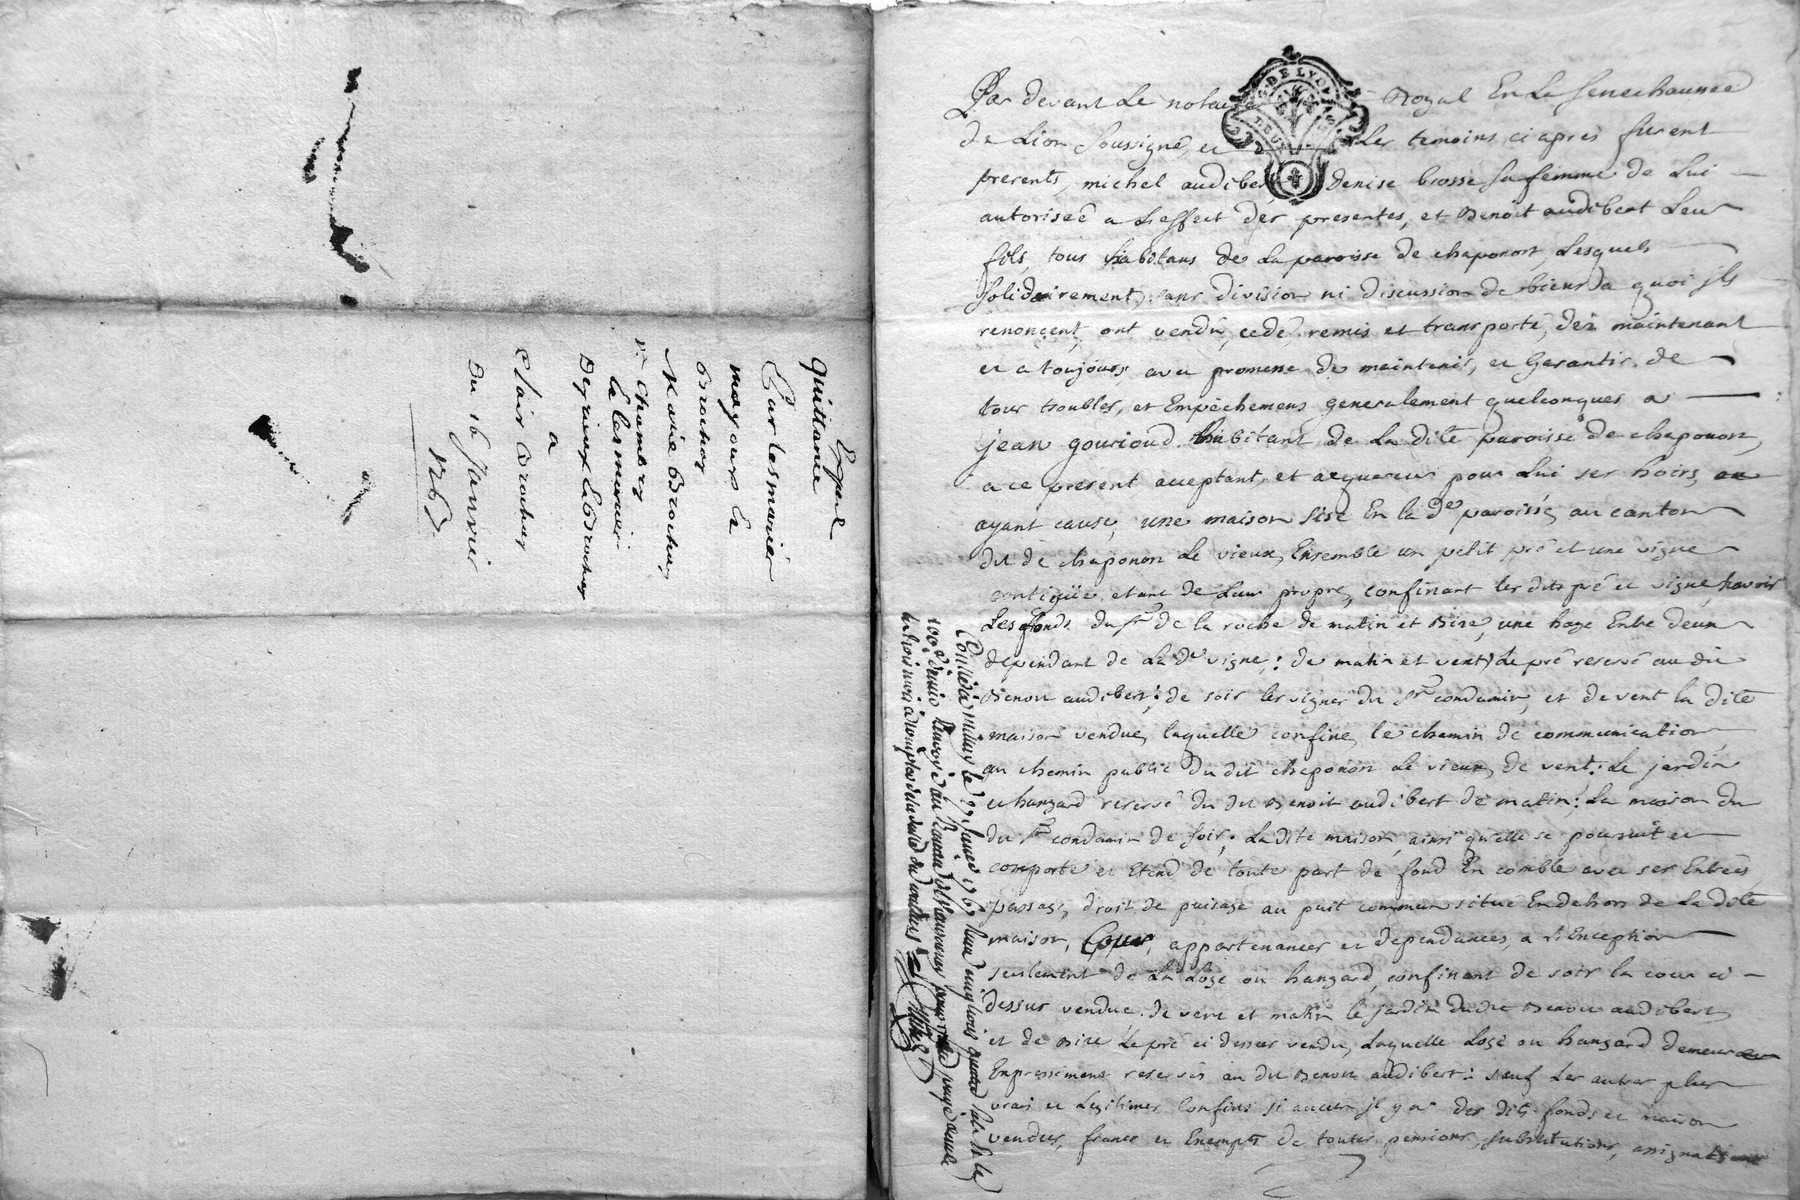 Expent
quittance
Par les mariés
mayoure la
Brochay
Marie Brochay,
Chambry
Le les mercier
Degrieux La Brochay
a
Clair Brochay
Du 16 Janvier
1767
Par devant Le notaire Royal En La Senechaussée
de Lion Soussigné, et Les temoins ci apres furent
presents, michel audibert denise brosse sa femme de Lui
autoriseé a Leffect des presentes, et Benoit audibert Leur
fils, tous habitans de La paroisse de chaponost, Lesquels
solidairement, sans division ni discussion de biens a quoi ils
renoncent, ont vendu, cedé remis et transporté, dez maintenant
et a toujours avec promesse de maintenir, et Garantir de
tous troubles, et Empêchemens generalement quelconques a
jean gourioud habitant de La dite paroisse de chaponon,
a ce present acceptant, et acquereur pour Lui ses hoirs,
ayant cause, une maison sise En la de paroisse, au canton
dit de chaponon Le vieux, Ensemble un petit pré et une vigne
contiguë, etant de Leur propre, confinant les dits pré et vigne, savoir
Les fonds du sr de la roche de matin et Bize, une haye Entre deux
dependant de La de vigne; de matin et vent Le pré reservé au dit
Benoit audibert; de soir les vignes du sr condamin, et de vent la dite
maison vendue, laquelle confine, le chemin de communication
au chemin public du dit chaponon Le vieux, de vent; Le jardin
et hangard reservé du dit Benoit audibert de matin; La maison du
du sr condamin de soir; La dite maison, ainsi qu'elle se poursuit et
comporte et Etend de toute part de fond En comble avec ses Entrées
passage, droit de puisage au puit commun situé En dehors de La dite
maison, Cour, appartenances et dependances, a L'Exception
seulement de La Loge ou hangard, confinant de soir la cour ci
dessus vendue. de vent et matin le jardin dudit Benoit audibert
et de Bize Le pré ci dessus vendu, Laquelle Loge ou hangard demeure
Expressement reservés au dit Benoit audibert; sauf Les autres plus
vrais et Legitimes Confins si aucun il y a des dits fonds et maison
vendus, francs et Exempts de toutes pensions, substitutions, assignats
Controlé à millery le 29 Janvier 1767 Reçu vingt livres
100e denier Renvoyé au Bureau de
les trois mois à compter de la datte du contrat